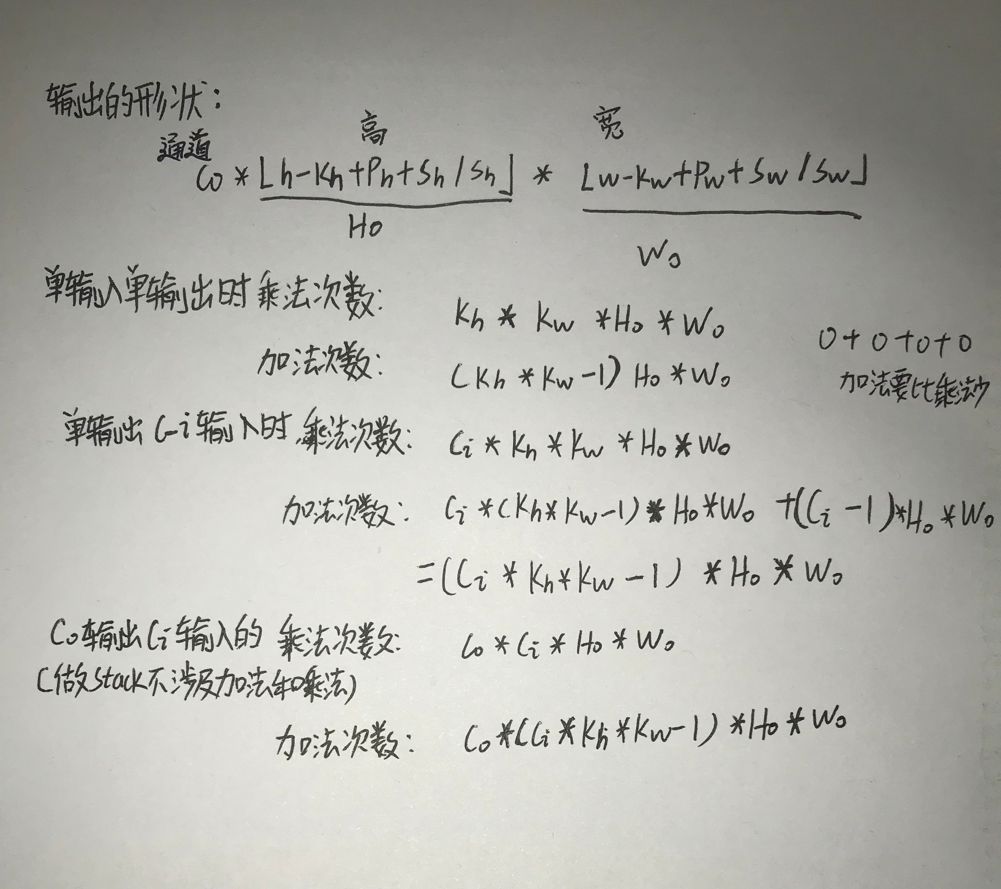 输出的形状:
通道 高 宽
Co * ⌊h-Kh+Ph+Sh/Sh⌋ * ⌊w-Kw+Pw+Sw/Sw⌋
Ho Wo
单输入单输出时乘法次数: Kh * Kw * Ho * Wo
加法次数: (Kh * Kw-1) Ho * Wo
0+0+0+0
加法要比乘法少
单输出Ci输入时乘法次数: Ci * Kh * Kw * Ho * Wo
加法次数: Ci * (Kh * Kw-1) * Ho * Wo +(Ci -1)*Ho * Wo
=(Ci * Kh * Kw -1) * Ho * Wo
Co输出Ci输入的乘法次数: Co * Ci * Ho * Wo
(做Stack不涉及加法和乘法)
加法次数: Co*(Ci * Kh * Kw-1) * Ho * Wo